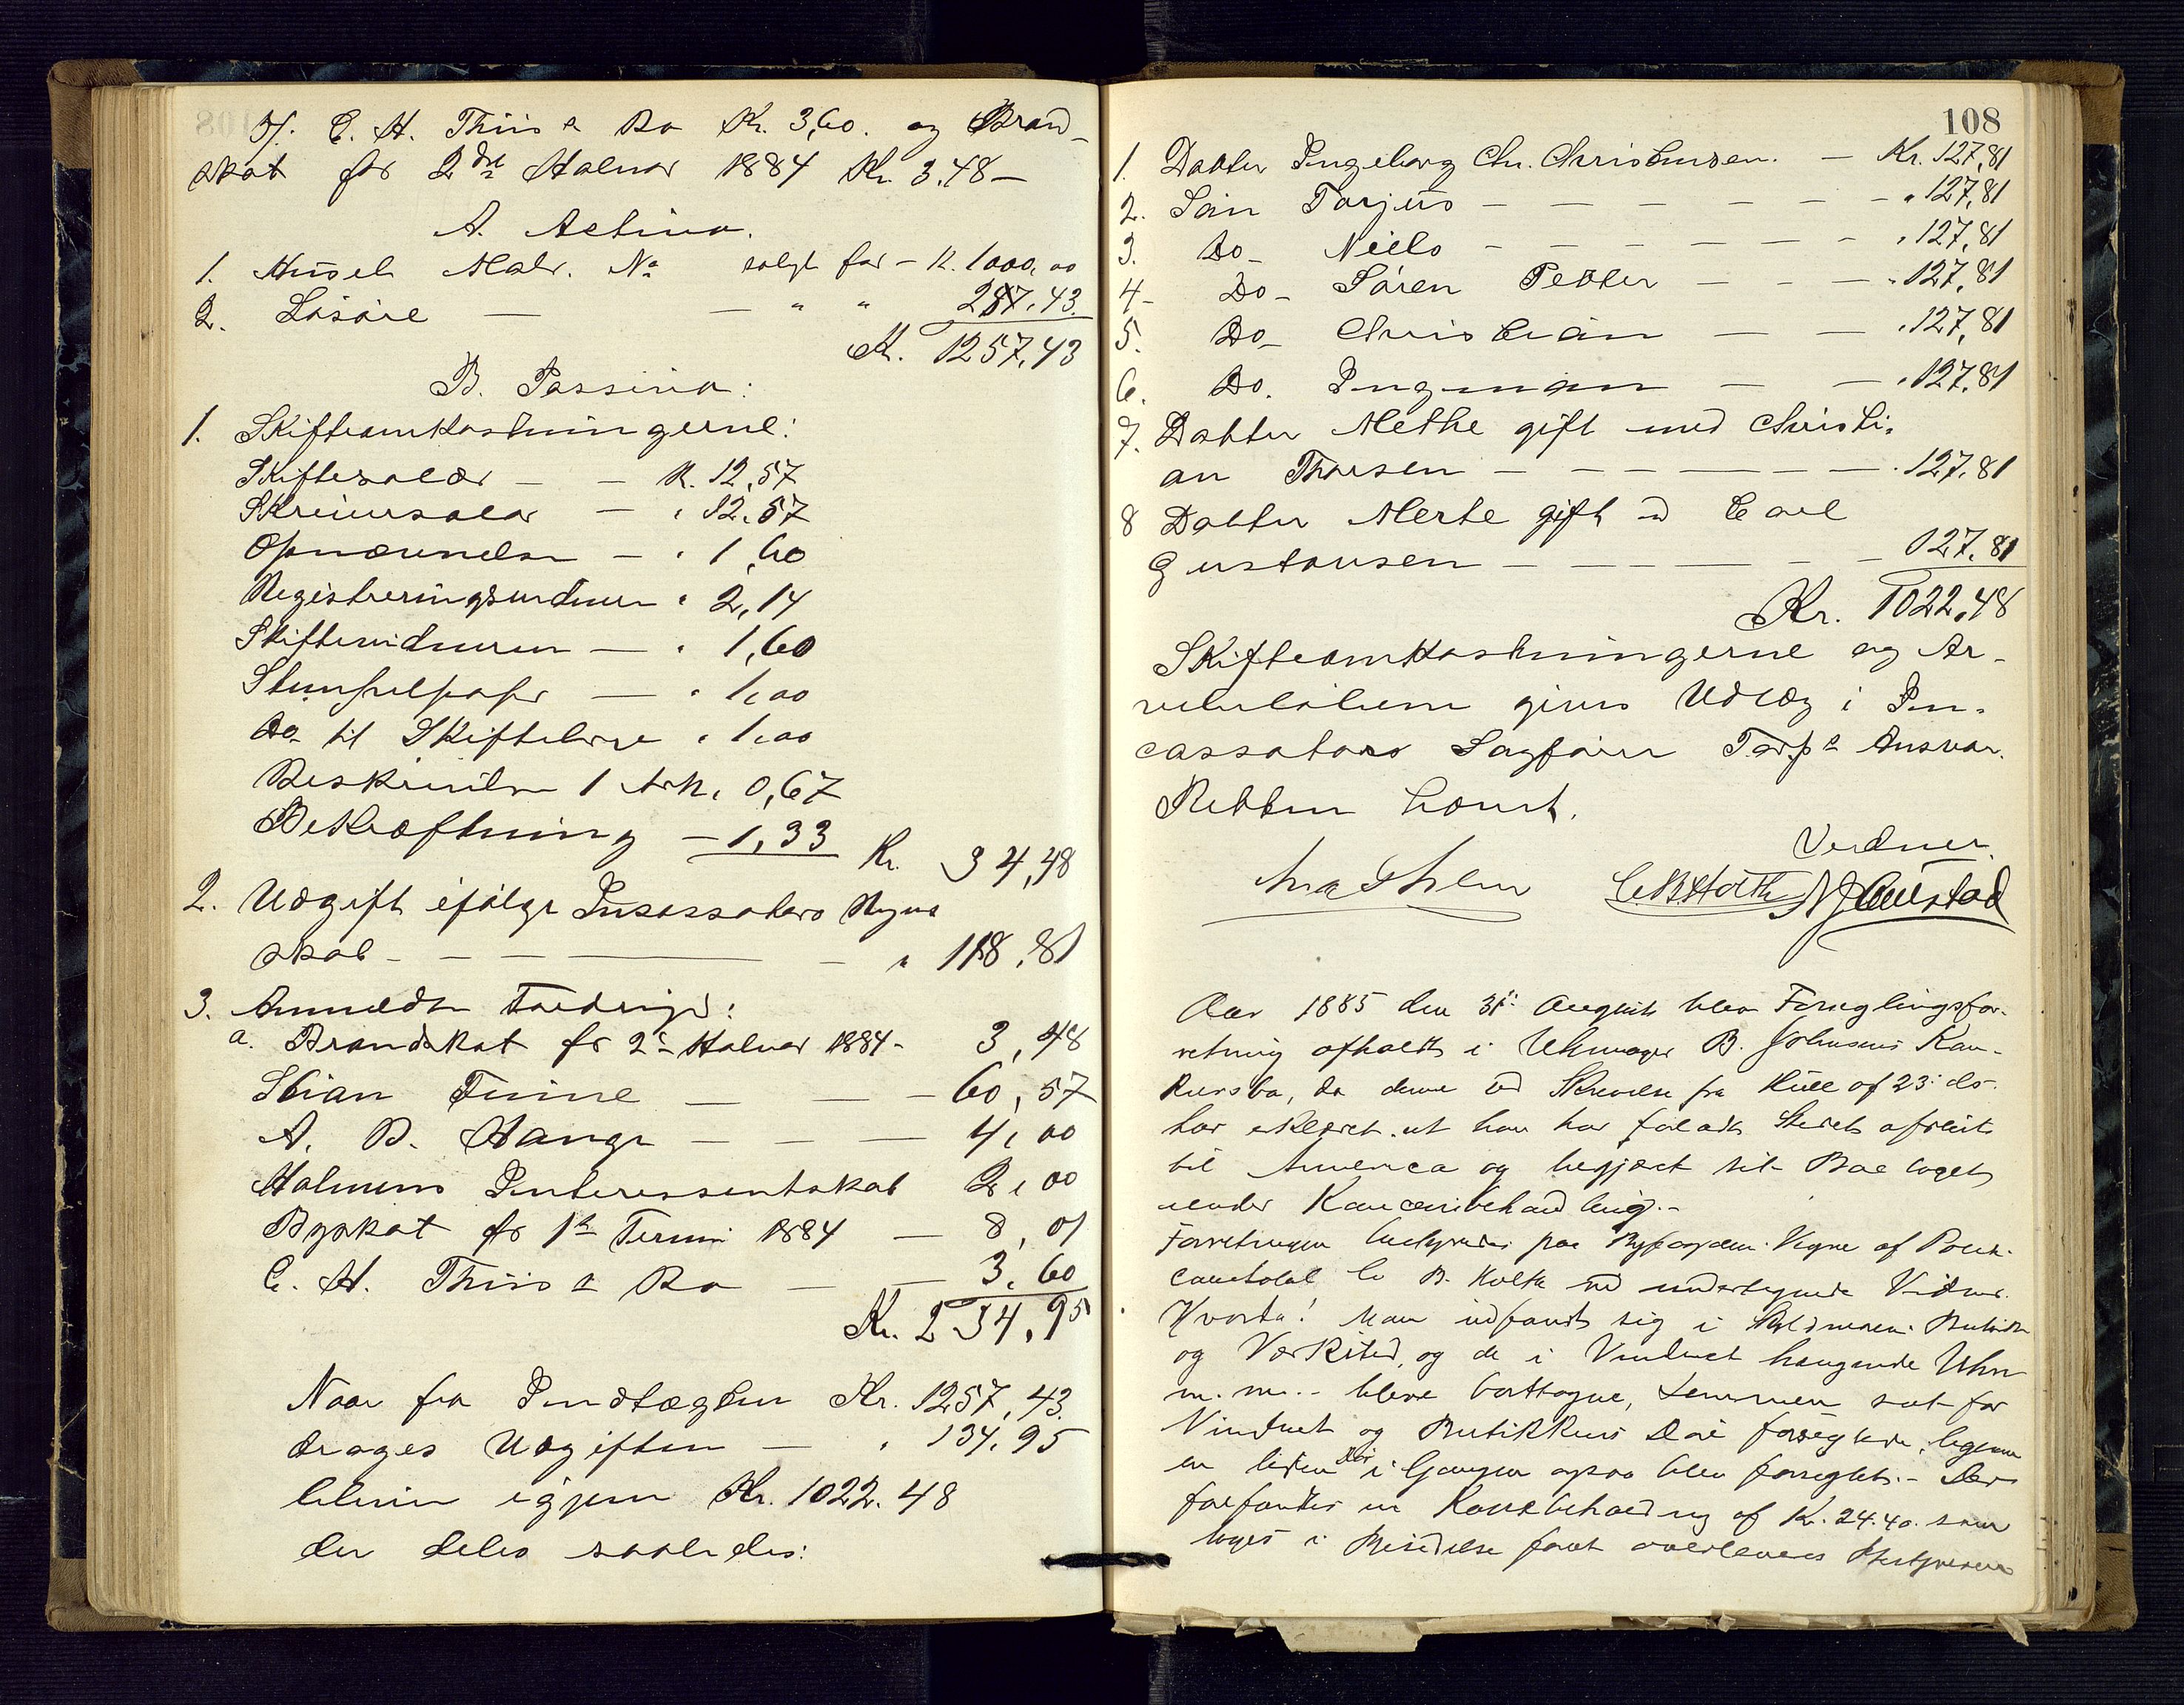 H. C. H. Thiis & Ko Kr. 3,60. og Brand-
skat for 2det Halvaar 1884 Kr. 3.48 –
A. Activa.
1. Huset Matr. No solgt for – K. 1000,00
2. Lösöre — — " " 257.43.
Kr. 1257.43
B. Passiva:
1. Skifteomkostningerne:
Skiftesalær – – K. 12,57
Skriversalær – " 12.57
Opnævnelse – " 1,60
Registreringsvidner " 2,14
Skiftevidner — " 1,60
Stempelpapir — " 1,00
Do til Skiftebrev " 1.00
Beskrivelse 1 Ark. 0,67
Bekræftning – 1,33 Kr. 34,48
2. Udgift ifölge Incassators Regn
skab – – – — – " 118,81
3. Anmeldte Fordringer:
a. Brandskat for 2det Halvaar 1884 – 3,48
Stian Finne — — – 60,57
A. B. Hange — — — 4,00
Holmens Interessentskab 2,00
Byskat for 1ste Termin 1884 – 8,01
C. H. Thiis & Ko — – 3,60
Kr. 234,95
Naar fra Indtægten Kr. 1257,43.
drages Udgiften — " 134.95
bliver igjen Kr. 1022.48
der deles saaledes:
108
1. Datter Ingeborg Chr. Christensen. – Kr. 127,81
2. Sön Torjus – – – – – – " 127,81
3. Do – Niels – – – – – – " 127,81
4 – Do – Sören Petter – – – " 127,81
5. Do – Christian – – " 127,81
6. Do. Ingman – – " 127,81
7. Datter Methe gift med Christi-
an Thorsen – – – – – – " 127.81
8 Datter Merte gift m Carl
Gustavsen – – – – – – 127.81
Kr. 1022,48
Skifteomkostningerne og Ar-
velodderne gives Udlæg i In-
cassators Sagförer Tarps Ansvar.
Retten hævet.
Vidner.
C B Holth N J Austad
Aar 1885 den 31te August blev Forseglingsfor-
retning afholdt i Uhrmager B. Johnsens Kon-
kursbo, da denne ved Skrivelse fra Hull af 23de ds.
har erklæret at han har forladt Stedet afreist
til America og begjært sit Boe taget
under Konkursbehandling. –
Forretningen bestyredes paa Byfogdens Vegne af Politi-
constabel C B. Holth med undertegnede Vidner.
Hvorda! Man indfandt sig i Butik
og Værksted, og de i Vinduet hængende Uhre
m. m. – bleve borttagne, Lemmen sat for
Vinduet og Butikkens Dör forseglede, ligesom
en liden Dör i Gangen ogsaa blev forseglet. – Der
forefandtes en Kassebeholdning af K. 24.40. som
toges i Besiddelse for at overleveres Bestyreren